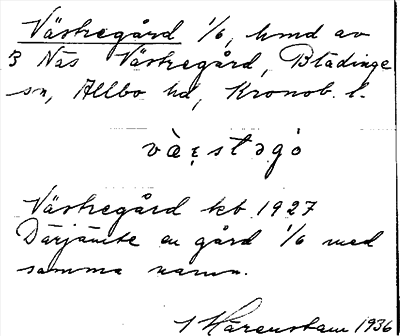 Västregård 1/6, hmd av
3 Näs Västregård, Blädinge
sn, Allbo hd, Kronob. l.
væ̀ꭋstəgó
Västregård kb 1927
Därjämte en gård 1/6 med
samma namn.
1 Härenstam 1936